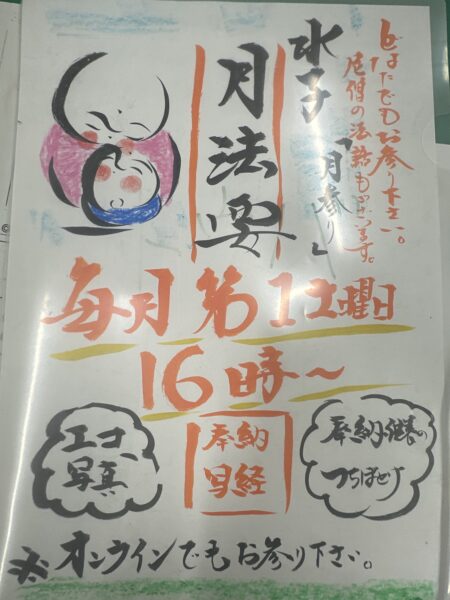 どなたでもお参り下さい。
尼僧の法話もございます。
水子「月参り」
月法要
毎月第1土曜日
16時〜
エコー写真
奉納写経
奉納
※オンラインでもお参り下さい。